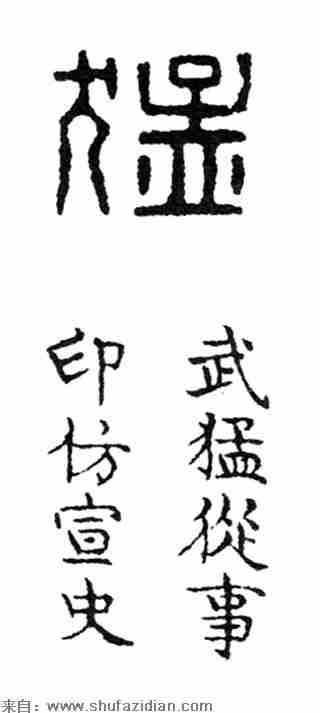 猛
武猛從事
印仿宣史
来自：www.shufazidian.com